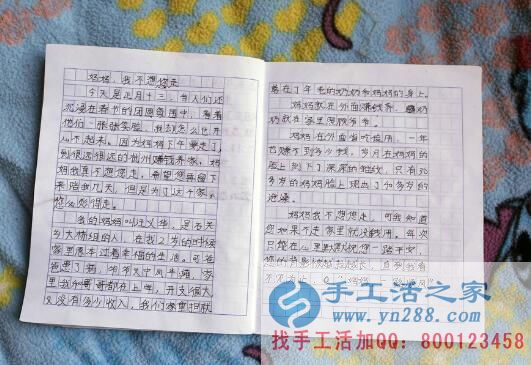 妈妈，我不想您走
今天是正月十三，当人们还
沉浸在春节的团圆氛围中，看着
他们一张张笑脸，我却怎么也开心
不起来。因为妈妈下午要走了，
到很远很远的杭州赚钱养家。妈
妈我真不想您走。希望您再留下
来陪我几天，但是为了这个家
您必须得走。
我的妈妈叫 华，是
乡大桥组的人，在我2岁的时候
家里原本过着幸福的生活。可爸
爸患了病，
里我和哥哥都在上学，开支很大
又没有多少收入，我们家重担就
落在了年老的奶奶和妈妈的身上。
妈妈就在外面赚钱养，奶
奶我在家里照顾爷爷。
妈妈在外面省吃俭用，一年
也赚不到多少钱，岁月在妈妈的
脸上刻下了深深的皱纹，只有30
多岁的妈妈脸上现出了40多岁的
沧桑。
妈妈我不想您走，可我知道
您如果不走家里就没钱用。每次
只能在心里默默祝您一路平安，
您的背影
手工活之家
www.yn288.com
找手工活加QQ：800123458